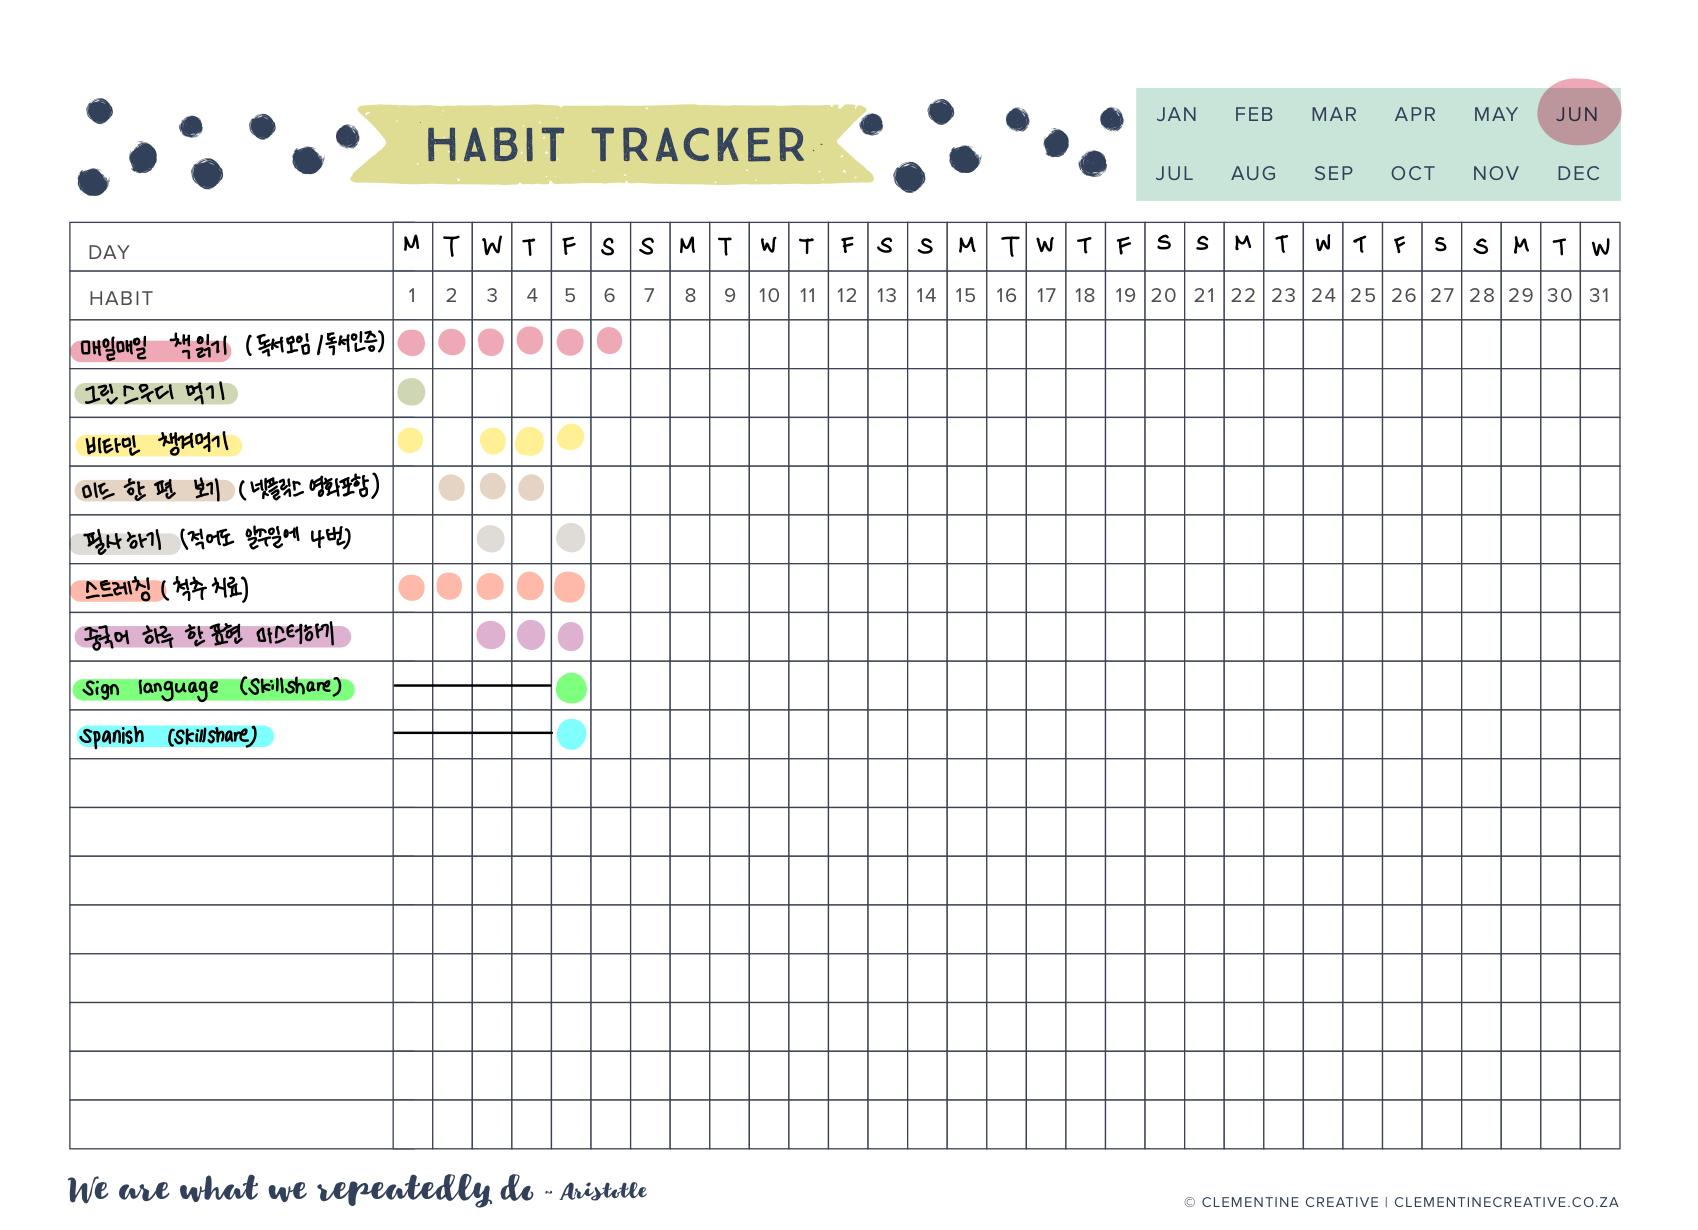 HABIT TRACKER
JAN FEB MAR APR MAY JUN
JUL AUG SEP OCT NOV DEC
DAY M T W T F S S M T W T F S S M T W T F S S M T W T F S S M T W
HABIT 1 2 3 4 5 6 7 8 9 10 11 12 13 14 15 16 17 18 19 20 21 22 23 24 25 26 27 28 29 30 31
매일매일 책 읽기 (독서모임/독서인증)
그린스무디 먹기
비타민 챙겨먹기
미드 한 편 보기 (넷플릭스 영화포함)
필사하기 (적어도 일주일에 4번)
스트레칭 (척추 치료)
중국어 하루 한 표현 마스터하기
Sign language (Skillshare)
Spanish (Skillshare)
We are what we repeatedly do - Aristotle
© CLEMENTINE CREATIVE | CLEMENTINECREATIVE.CO.ZA